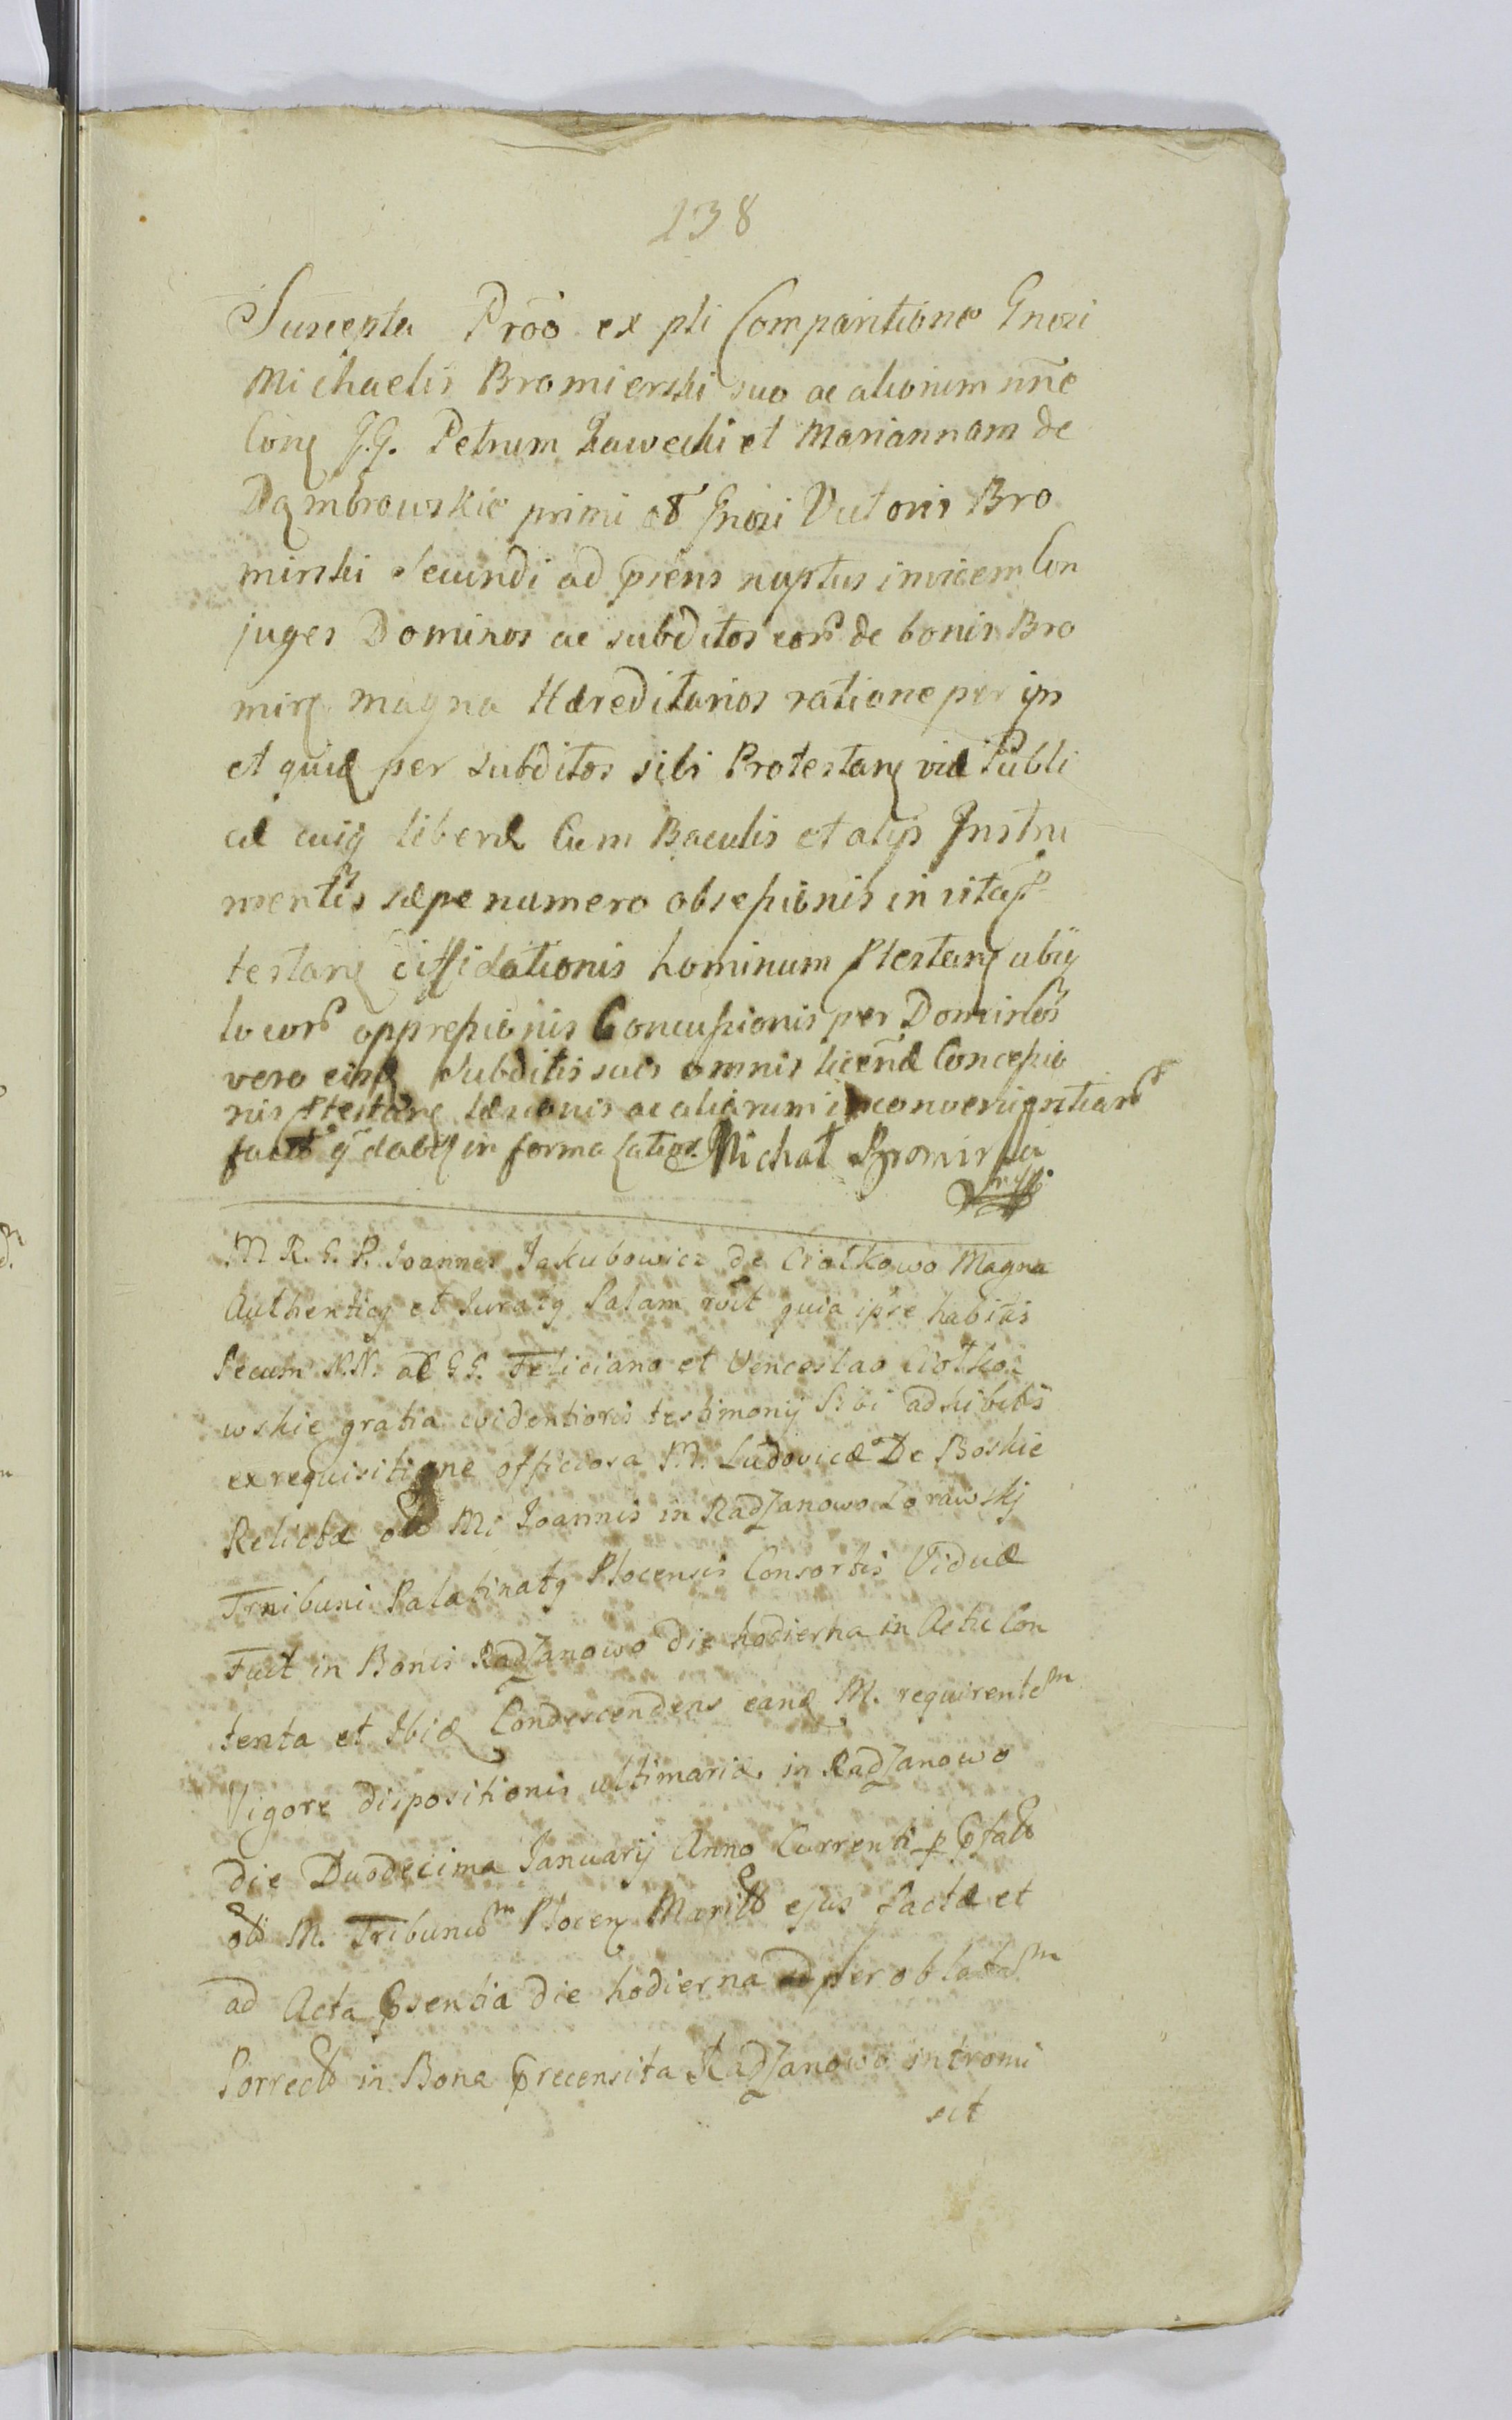 138
Suscepta Proõ ex pli Comparitione Gnosi
Michaelis Bromierski suo ac aliorum nñe
Conq G.G. Petrum Zawecki et Mariannam de
Dąmbrowskie primi ol Gnosi Victoris Bro
mirski Secundi ad psens nuptus invicem Con
juges Dominos ac subditos eor de bonis Bro
mirz magna Hæreditarios ratione per ips
et quid per subditos sibi Protestanq viæ Publi
cæ cuiq liberæ Cum Baculis et alijs Instru
mentis sæpe numero obsepionis in vita p
testanq diffidationis hominum ptestanq ubiq
locor oppressionis Concussionis per Dominos
vero eisd subditis suis omnis licenæ Concessio
nis ptestanq læsionis ac aliarum inconvenientiar
facto q dabq in forma latior. Michał Bromirski
mpp
M R. G. P. Joannes Jakubowicz de Ciołkowo Magna
Authenticq et Juratq Palam rvit quia ipse habitis
Secum N.N. ac G G. Feliciano et Venceslao Ciołko
wskie gratia evidentioris testimonij Sibi adhibitis
ex requisitione officiosa M. Ludovicæ De Boskie
Relictæ ol Mi Joannis in Radzanowo Zorawskj
Tribuni Palatinatq Plocensis Consortis Viduæ
Fuit in Bonis Radzanowo die hodierna in Actu Con
tenta et Ibid Condescendens eand M. requirentem
Vigore dispositionis ultimariæ in Radzanowo
die Duodecima Januarij Anno Currenti p pfato
ol M. Tribunum Plocen Marito ejus factæ et
ad Acta psentia die hodierna per oblatam
Porrecto in Bona precensita Radzanowo intromi
sit